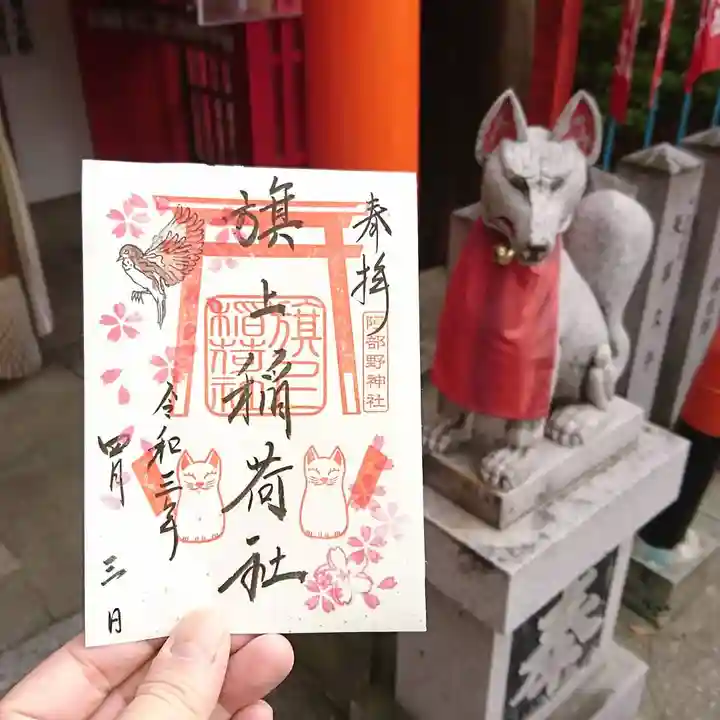 奉拝
阿部野神社
旗上稲荷社
旗上
稲荷社
令和三年
四月三日
奉